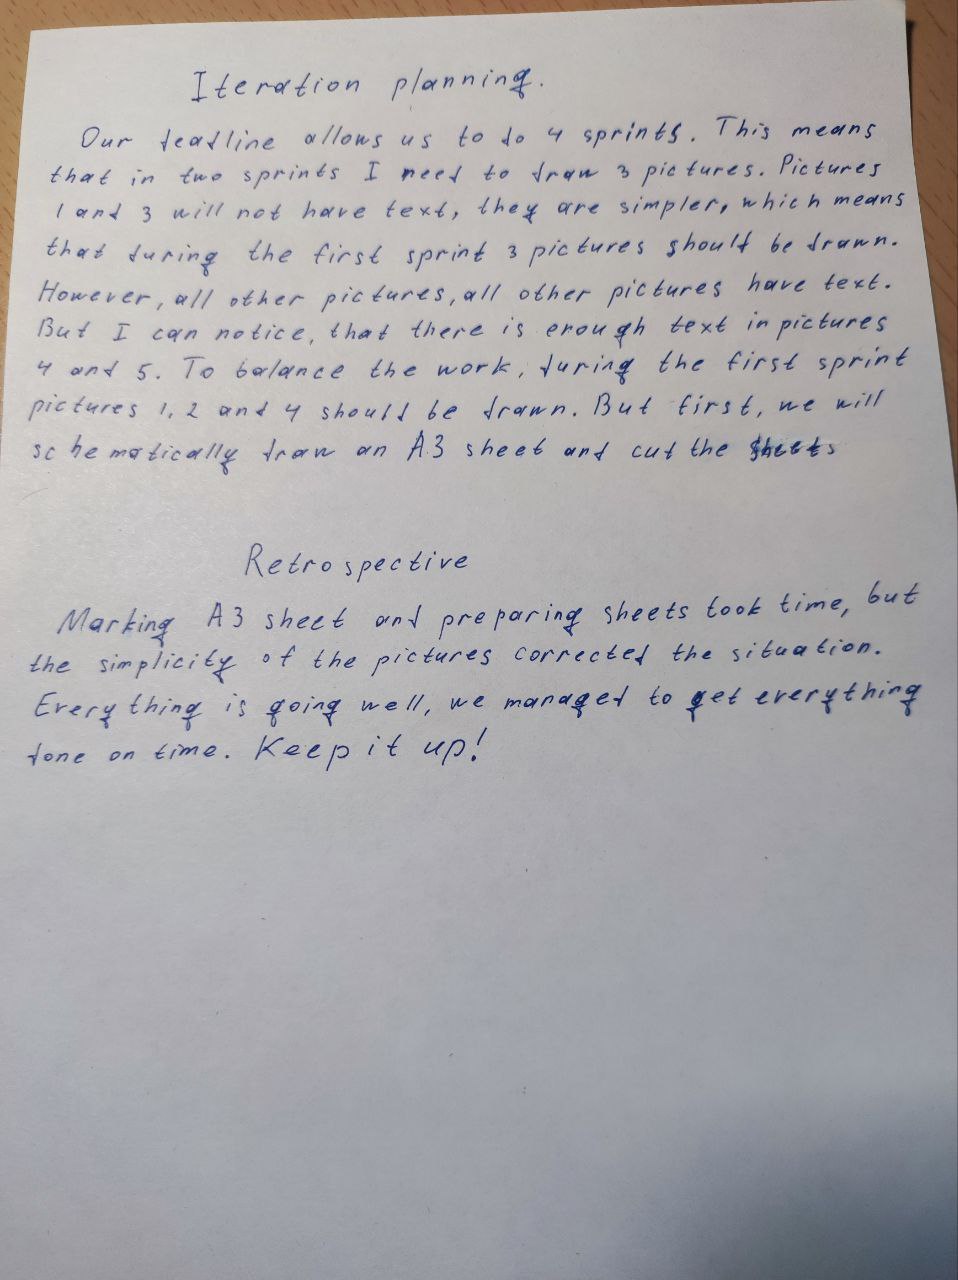 Iteration planning.
Our deadline allows us to do 4 sprints. This means
that in two sprints I need to draw 3 pictures. Pictures
1 and 3 will not have text, they are simpler, which means
that during the first sprint 3 pictures should be drawn.
However, all other pictures, all other pictures have text.
But I can notice, that there is enough text in pictures
4 and 5. To balance the work, during the first sprint
pictures 1, 2 and 4 should be drawn. But first, we will
schematically draw an A3 sheet and cut the sheets
Retrospective
Marking A3 sheet and preparing sheets took time, but
the simplicity of the pictures corrected the situation.
Everything is going well, we managed to get everything
done on time. Keep it up!